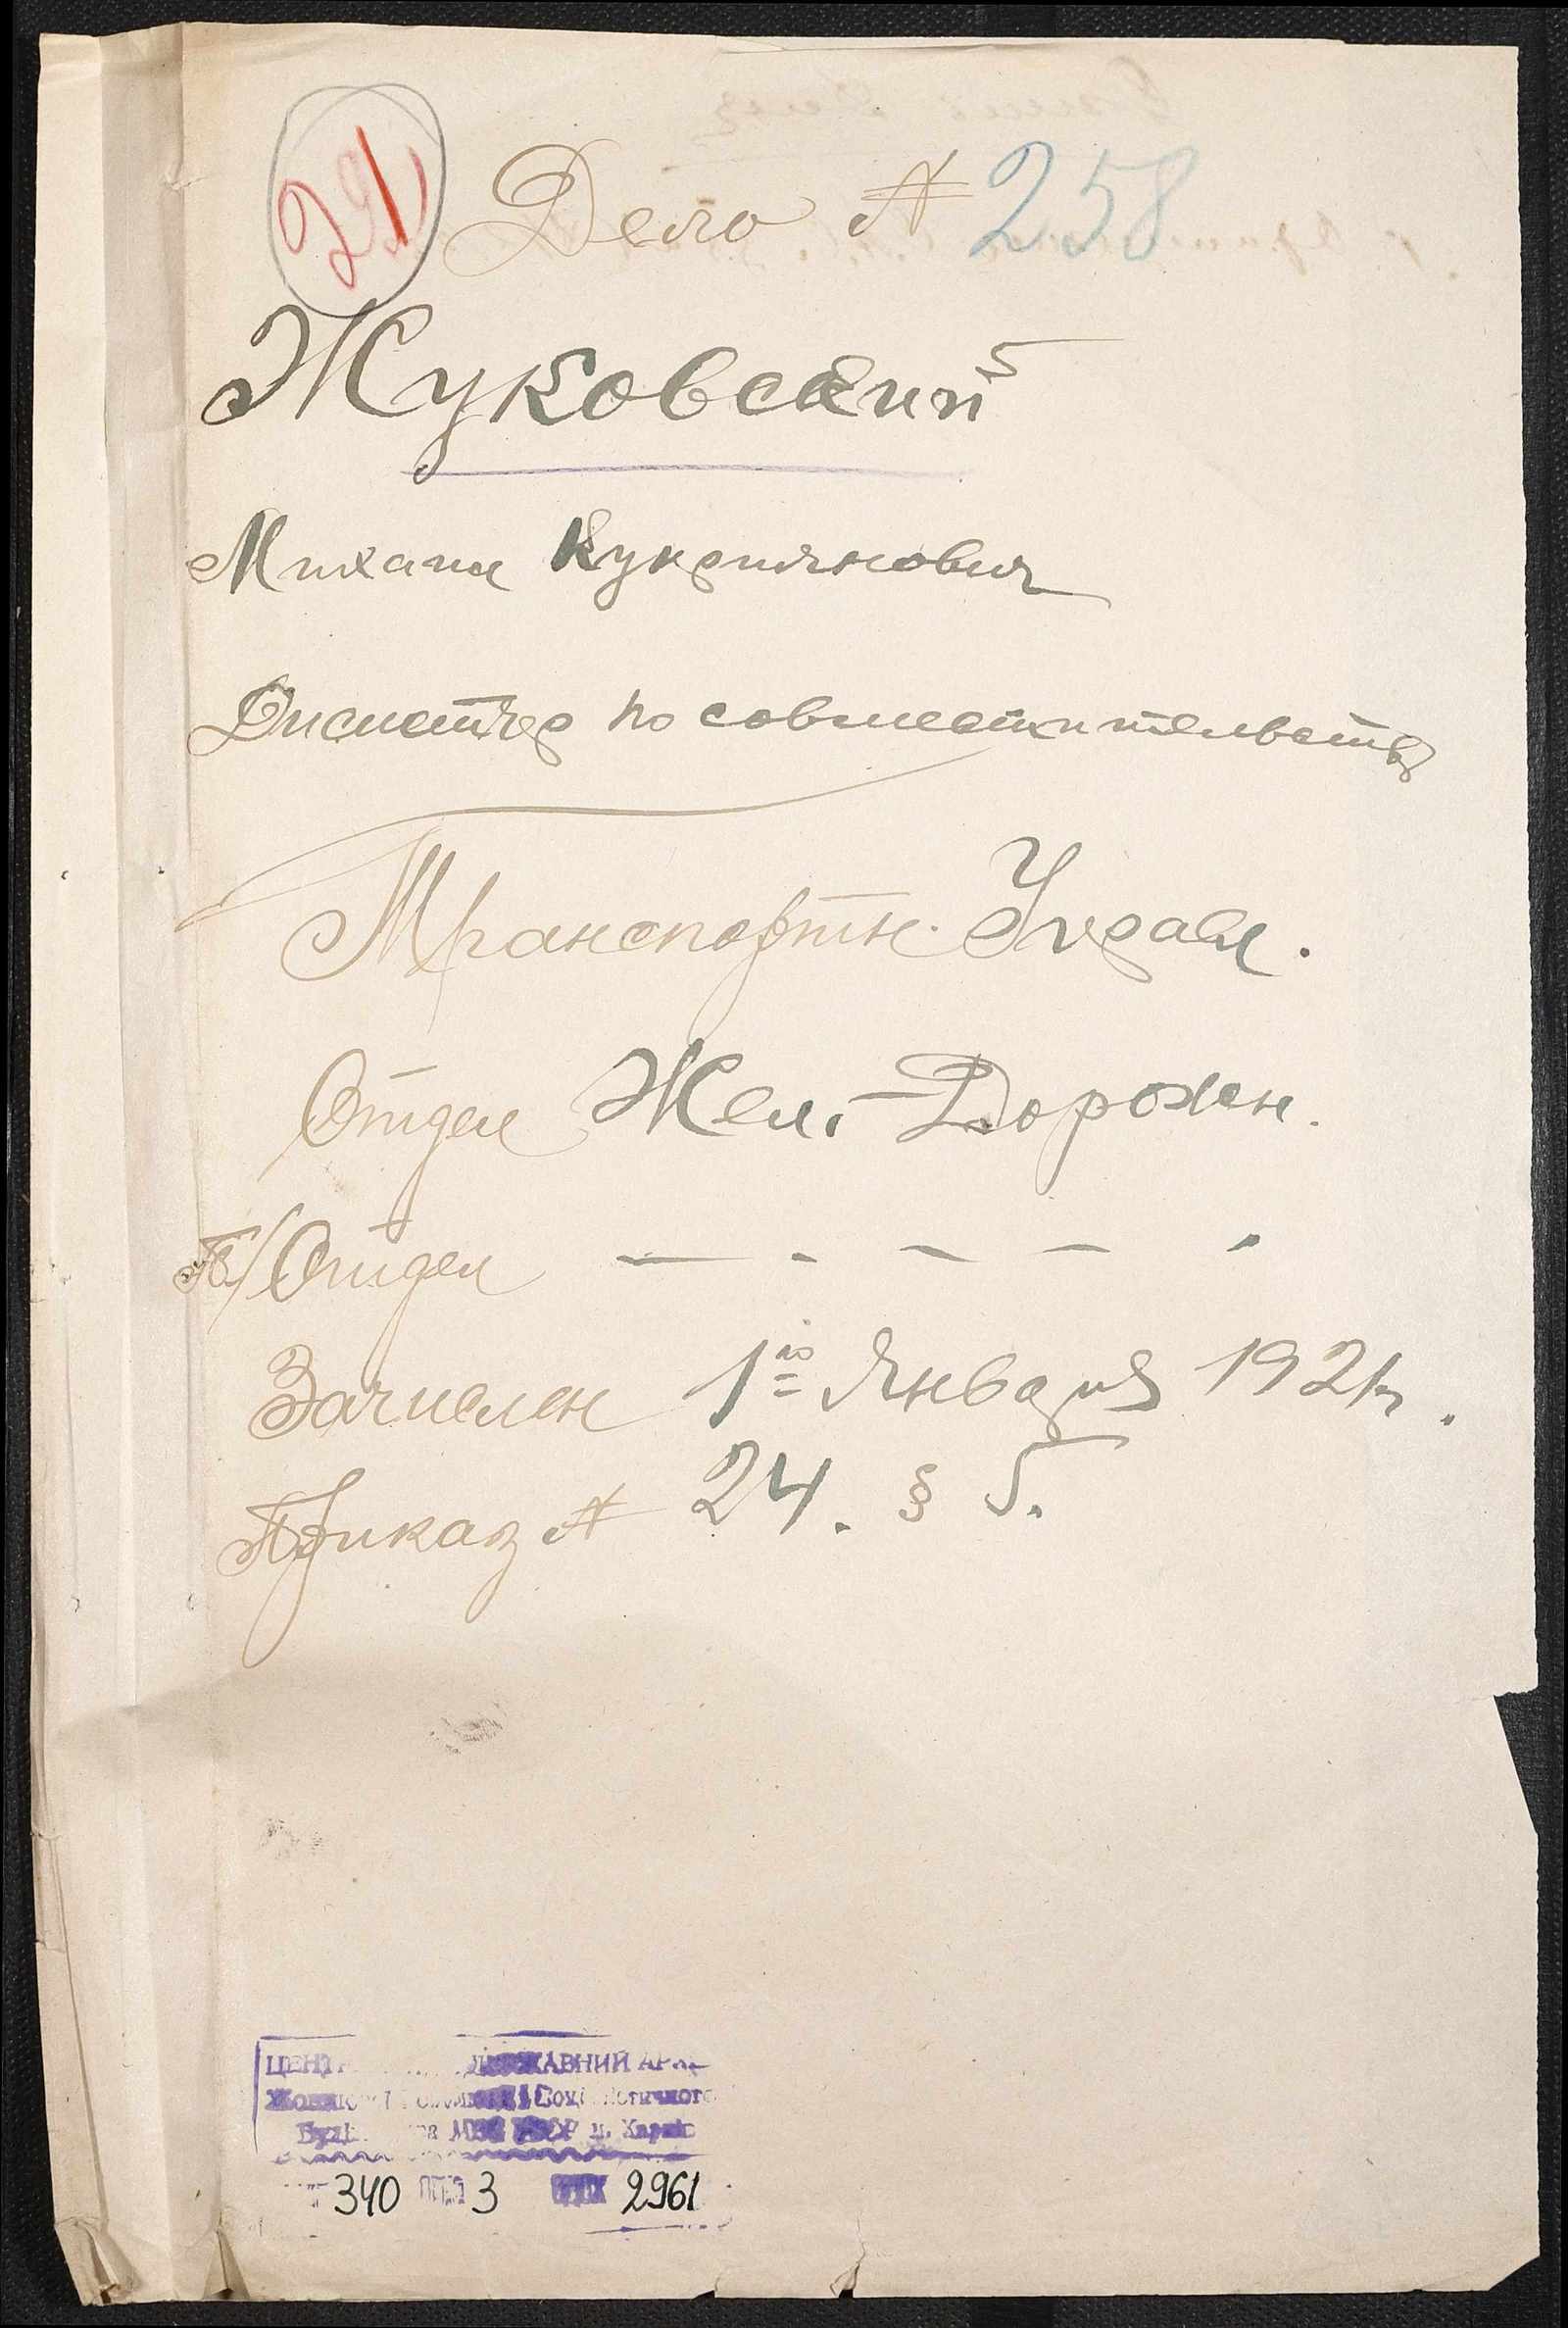 291
Дело № 258
Жуковский
Михаил Куприянович
Диспетчер по совместительству
Транспортн. Управл.
Отдел Жел.-Дорожн.
П/Отдел — - — — -
Зачислен 1го Января 1921г.
Приказ № 24. § 5.
ДЕРЖАВНИЙ
УРСР м. Харків
340 3 2961